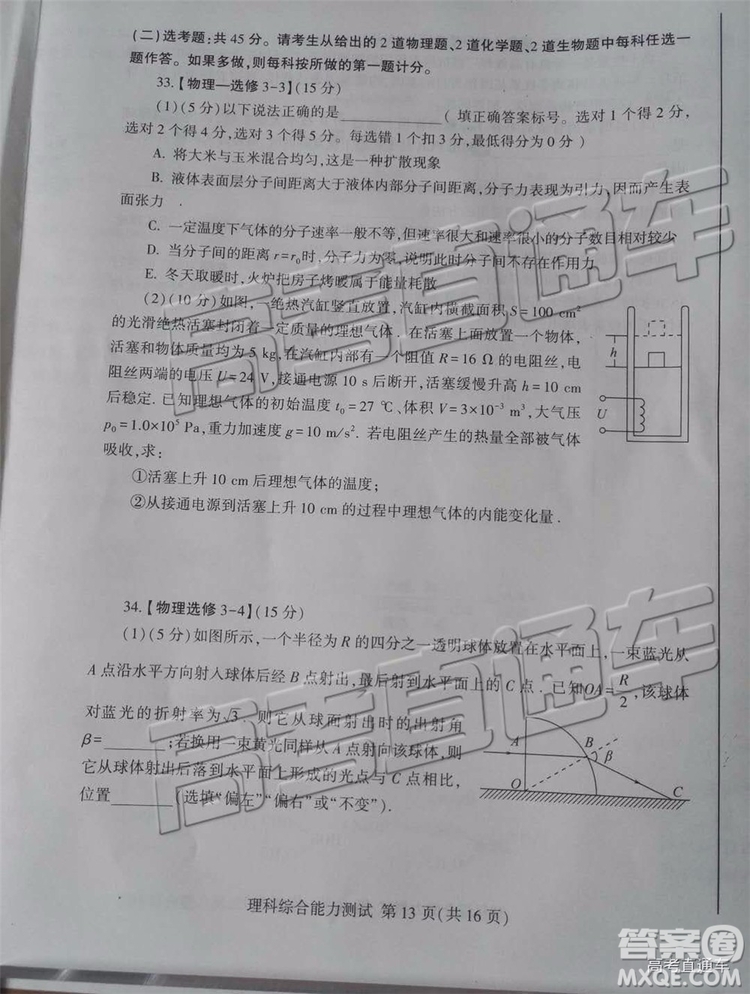 (二)选考题:共45分。请考生从给出的2道物理题、2道化学题、2道生物题中每科任选一
题作答。如果多做,则每科按所做的第一题计分。
33.【物理—选修3-3】(15分)
(1)(5分)以下说法正确的是____________( 填正确答案标号。选对1个得2分,
选对2个得4分,选对3个得5分。每选错1个扣3分,最低得分为0分)
A. 将大米与玉米混合均匀,这是一种扩散现象
B. 液体表面层分子间距离大于液体内部分子间距离,分子力表现为引力,因而产生表
面张力
C. 一定温度下气体的分子速率一般不等,但速率很大和速率很小的分子数目相对较少
D. 当分子间的距离r=r₀时,分子力为零,说明此时分子间不存在作用力
E. 冬天取暖时,火炉把房子烤暖属于能量耗散
(2)(10分)如图,一绝热汽缸竖直放置,汽缸内横截面积S=100 cm²
的光滑绝热活塞封闭着一定质量的理想气体.在活塞上面放置一个物体,
活塞和物体质量均为5 kg,在汽缸内部有一个阻值R=16 Ω的电阻丝,电
阻丝两端的电压U=24 V,接通电源10 s后断开,活塞缓慢升高h=10 cm
后稳定.已知理想气体的初始温度t₀=27 ℃、体积V=3×10⁻³ m³,大气压
p₀=1.0×10⁵ Pa,重力加速度g=10 m/s².若电阻丝产生的热量全部被气体
吸收,求:
①活塞上升10 cm后理想气体的温度;
②从接通电源到活塞上升10 cm的过程中理想气体的内能变化量.
h
U
34.【物理选修3-4】(15分)
(1)(5分)如图所示,一个半径为R的四分之一透明球体放置在水平面上,一束蓝光从
A点沿水平方向射入球体后经B点射出,最后射到水平面上的C点.已知OA=R/2,该球体
对蓝光的折射率为√3.则它从球面射出时的出射角
β=________;若换用一束黄光同样从A点射向该球体,则
它从球体射出后落到水平面上形成的光点与C点相比,
位置________(选填“偏左”“偏右”或“不变”).
A
B
β
O
C
理科综合能力测试 第13页(共16页)
高考直通车
高考直通车
答案圈
高考直通车
MXQE.COM